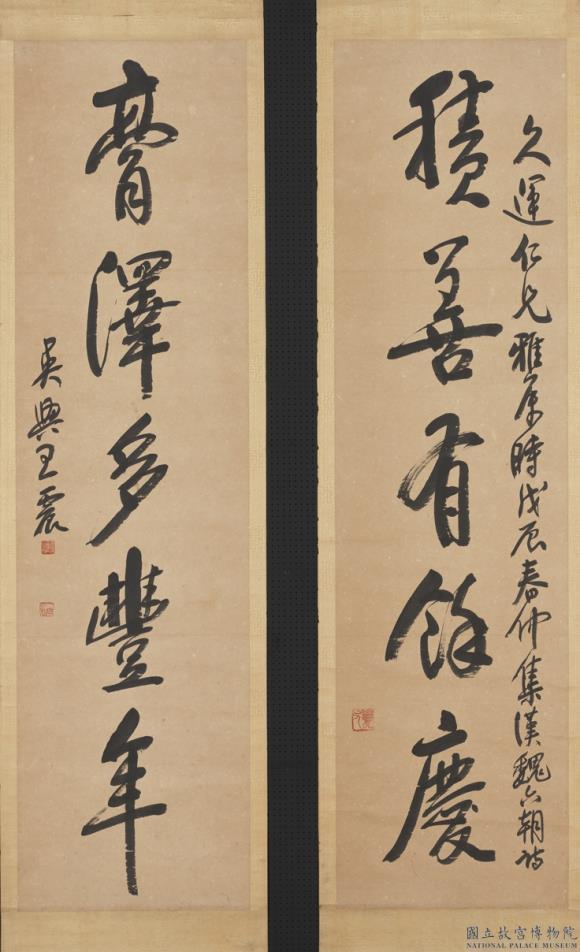 久運仁兄雅屬時戊辰春仲集漢魏六朝詩
積善有餘慶
膏澤多豐年
吳興王震
國立故宮博物院
NATIONAL PALACE MUSEUM